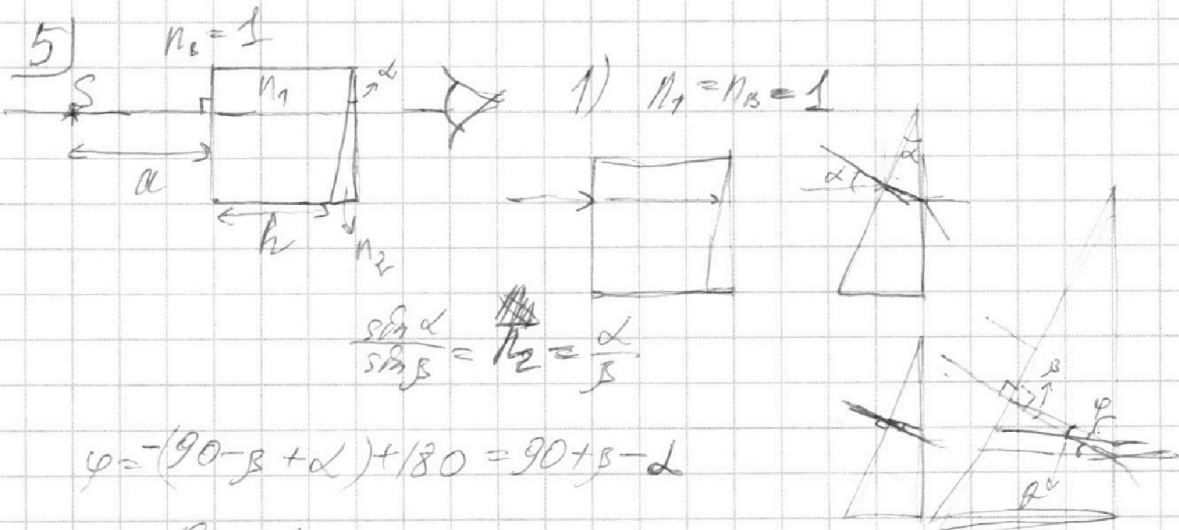 5) n_в = 1
S n_1 α
a
h n_2
1) n_1 = n_в = 1
α α
sin α / sin β = n_2 = α / β
β φ
φ = -(90 - β + α) + 180 = 90 + β - α